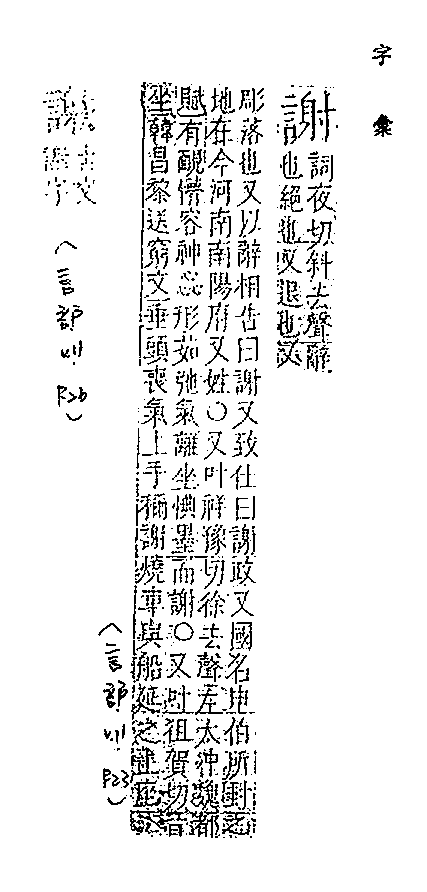 字彙
謝 詞夜切斜去聲辭
也絕也又退也又
彫落也又以辭相告曰謝又致仕曰謝政又國名申伯所封之
地在今河南南陽府又姓○又叶祥豫切徐去聲左太沖魏都
賦有靦瞢容神惢形茹弛氣離坐惧墨而謝○又叶祖賀切音
坐韓昌黎送窮文垂頭喪氣上手稱謝燒車與船延之上座
(言部 P23)
古文
謝字
(言部 P26)